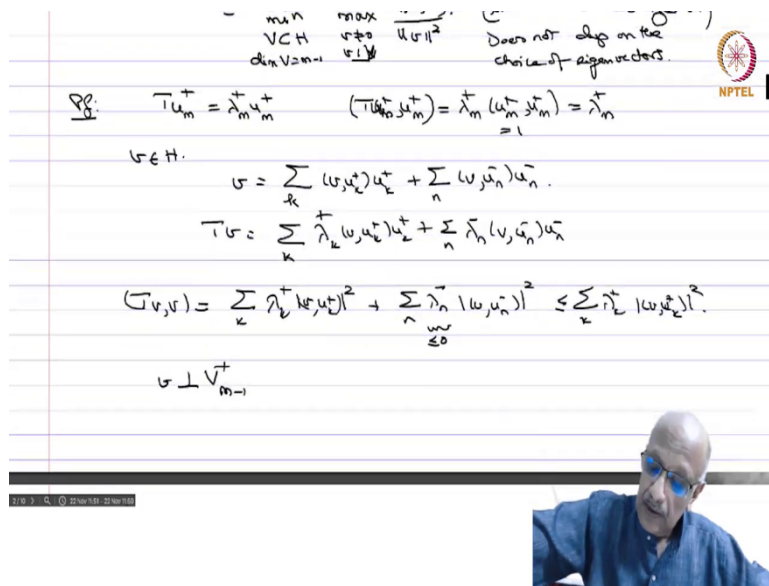 min max
V⊂H v≠0 ‖v‖² Does not dep on the
dim V=m-1 v⊥V choice of eigenvectors.
NPTEL
Pf: Tu_m^+ = λ_m^+ u_m^+ (Tu_m^+, u_m^+) = λ_m^+ (u_m^+, u_m^+) = λ_m^+
=1
v∈H.
v = Σ_k (v,u_k^+)u_k^+ + Σ_n (v,u_n^-)u_n^-.
Tv = Σ_k λ_k^+ (v,u_k^+)u_k^+ + Σ_n λ_n^- (v,u_n^-)u_n^-
(Tv,v) = Σ_k λ_k^+ |(v,u_k^+)|² + Σ_n λ_n^- |(v,u_n^-)|² ≤ Σ_k λ_k^+ |(v,u_k^+)|².
≤0
v ⊥ V_{m-1}^+
2/10
22 Nov 11:51 - 22 Nov 11:55